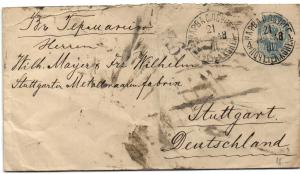 Въ Германію
Herren
Wilh. Mayer & Frz Wilhelm
Stuttgarter Metallwaarenfabrik
Stuttgart.
Deutschland.
21
21